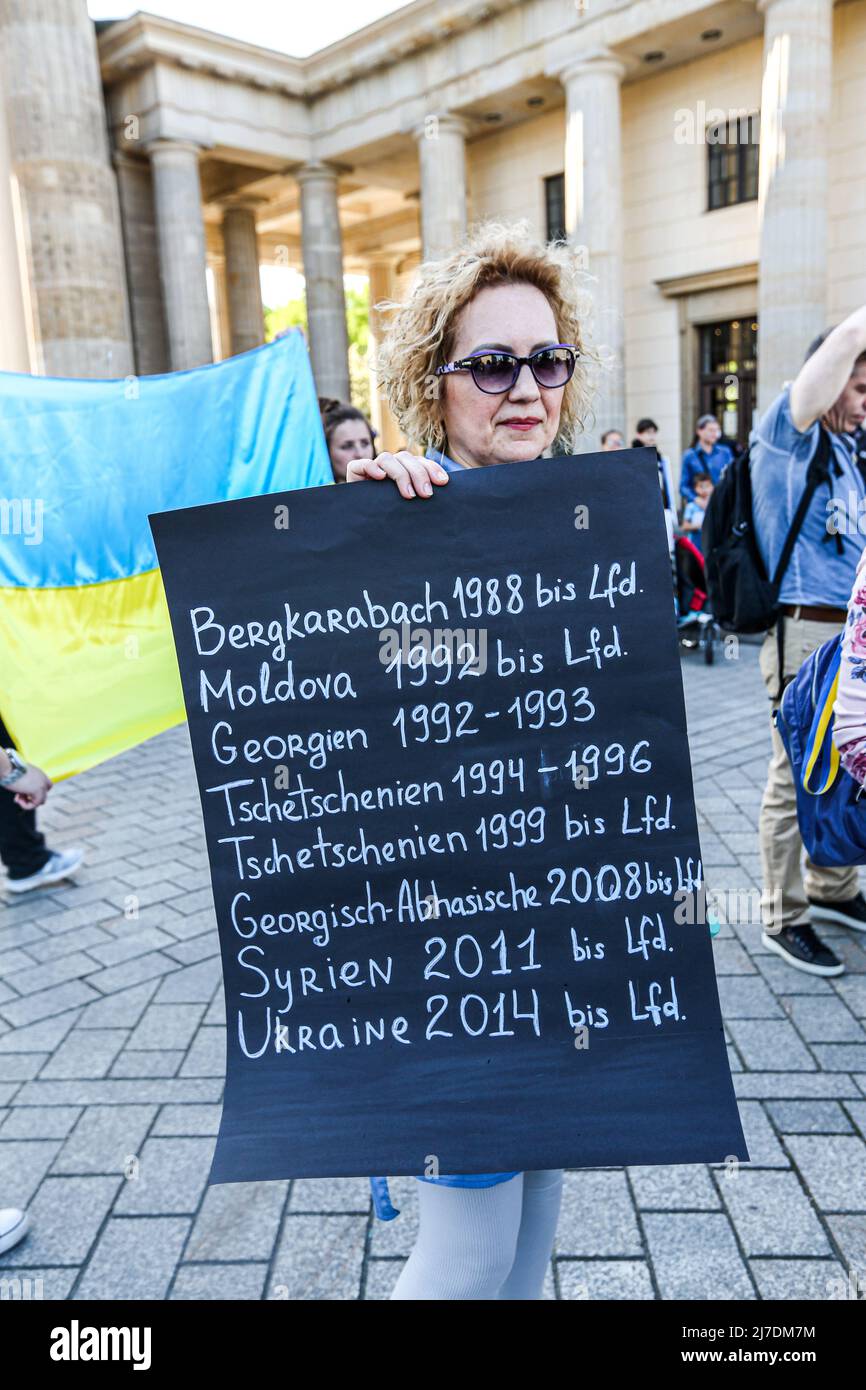 Bergkarabach 1988 bis Lfd.
Moldova 1992 bis Lfd.
Georgien 1992-1993
Tschetschenien 1994-1996
Tschetschenien 1999 bis Lfd.
Georgisch-Abhasische 2008 bis Lfd
Syrien 2011 bis Lfd.
Ukraine 2014 bis Lfd.
alamy
Image ID: 2J7DM7M
www.alamy.com